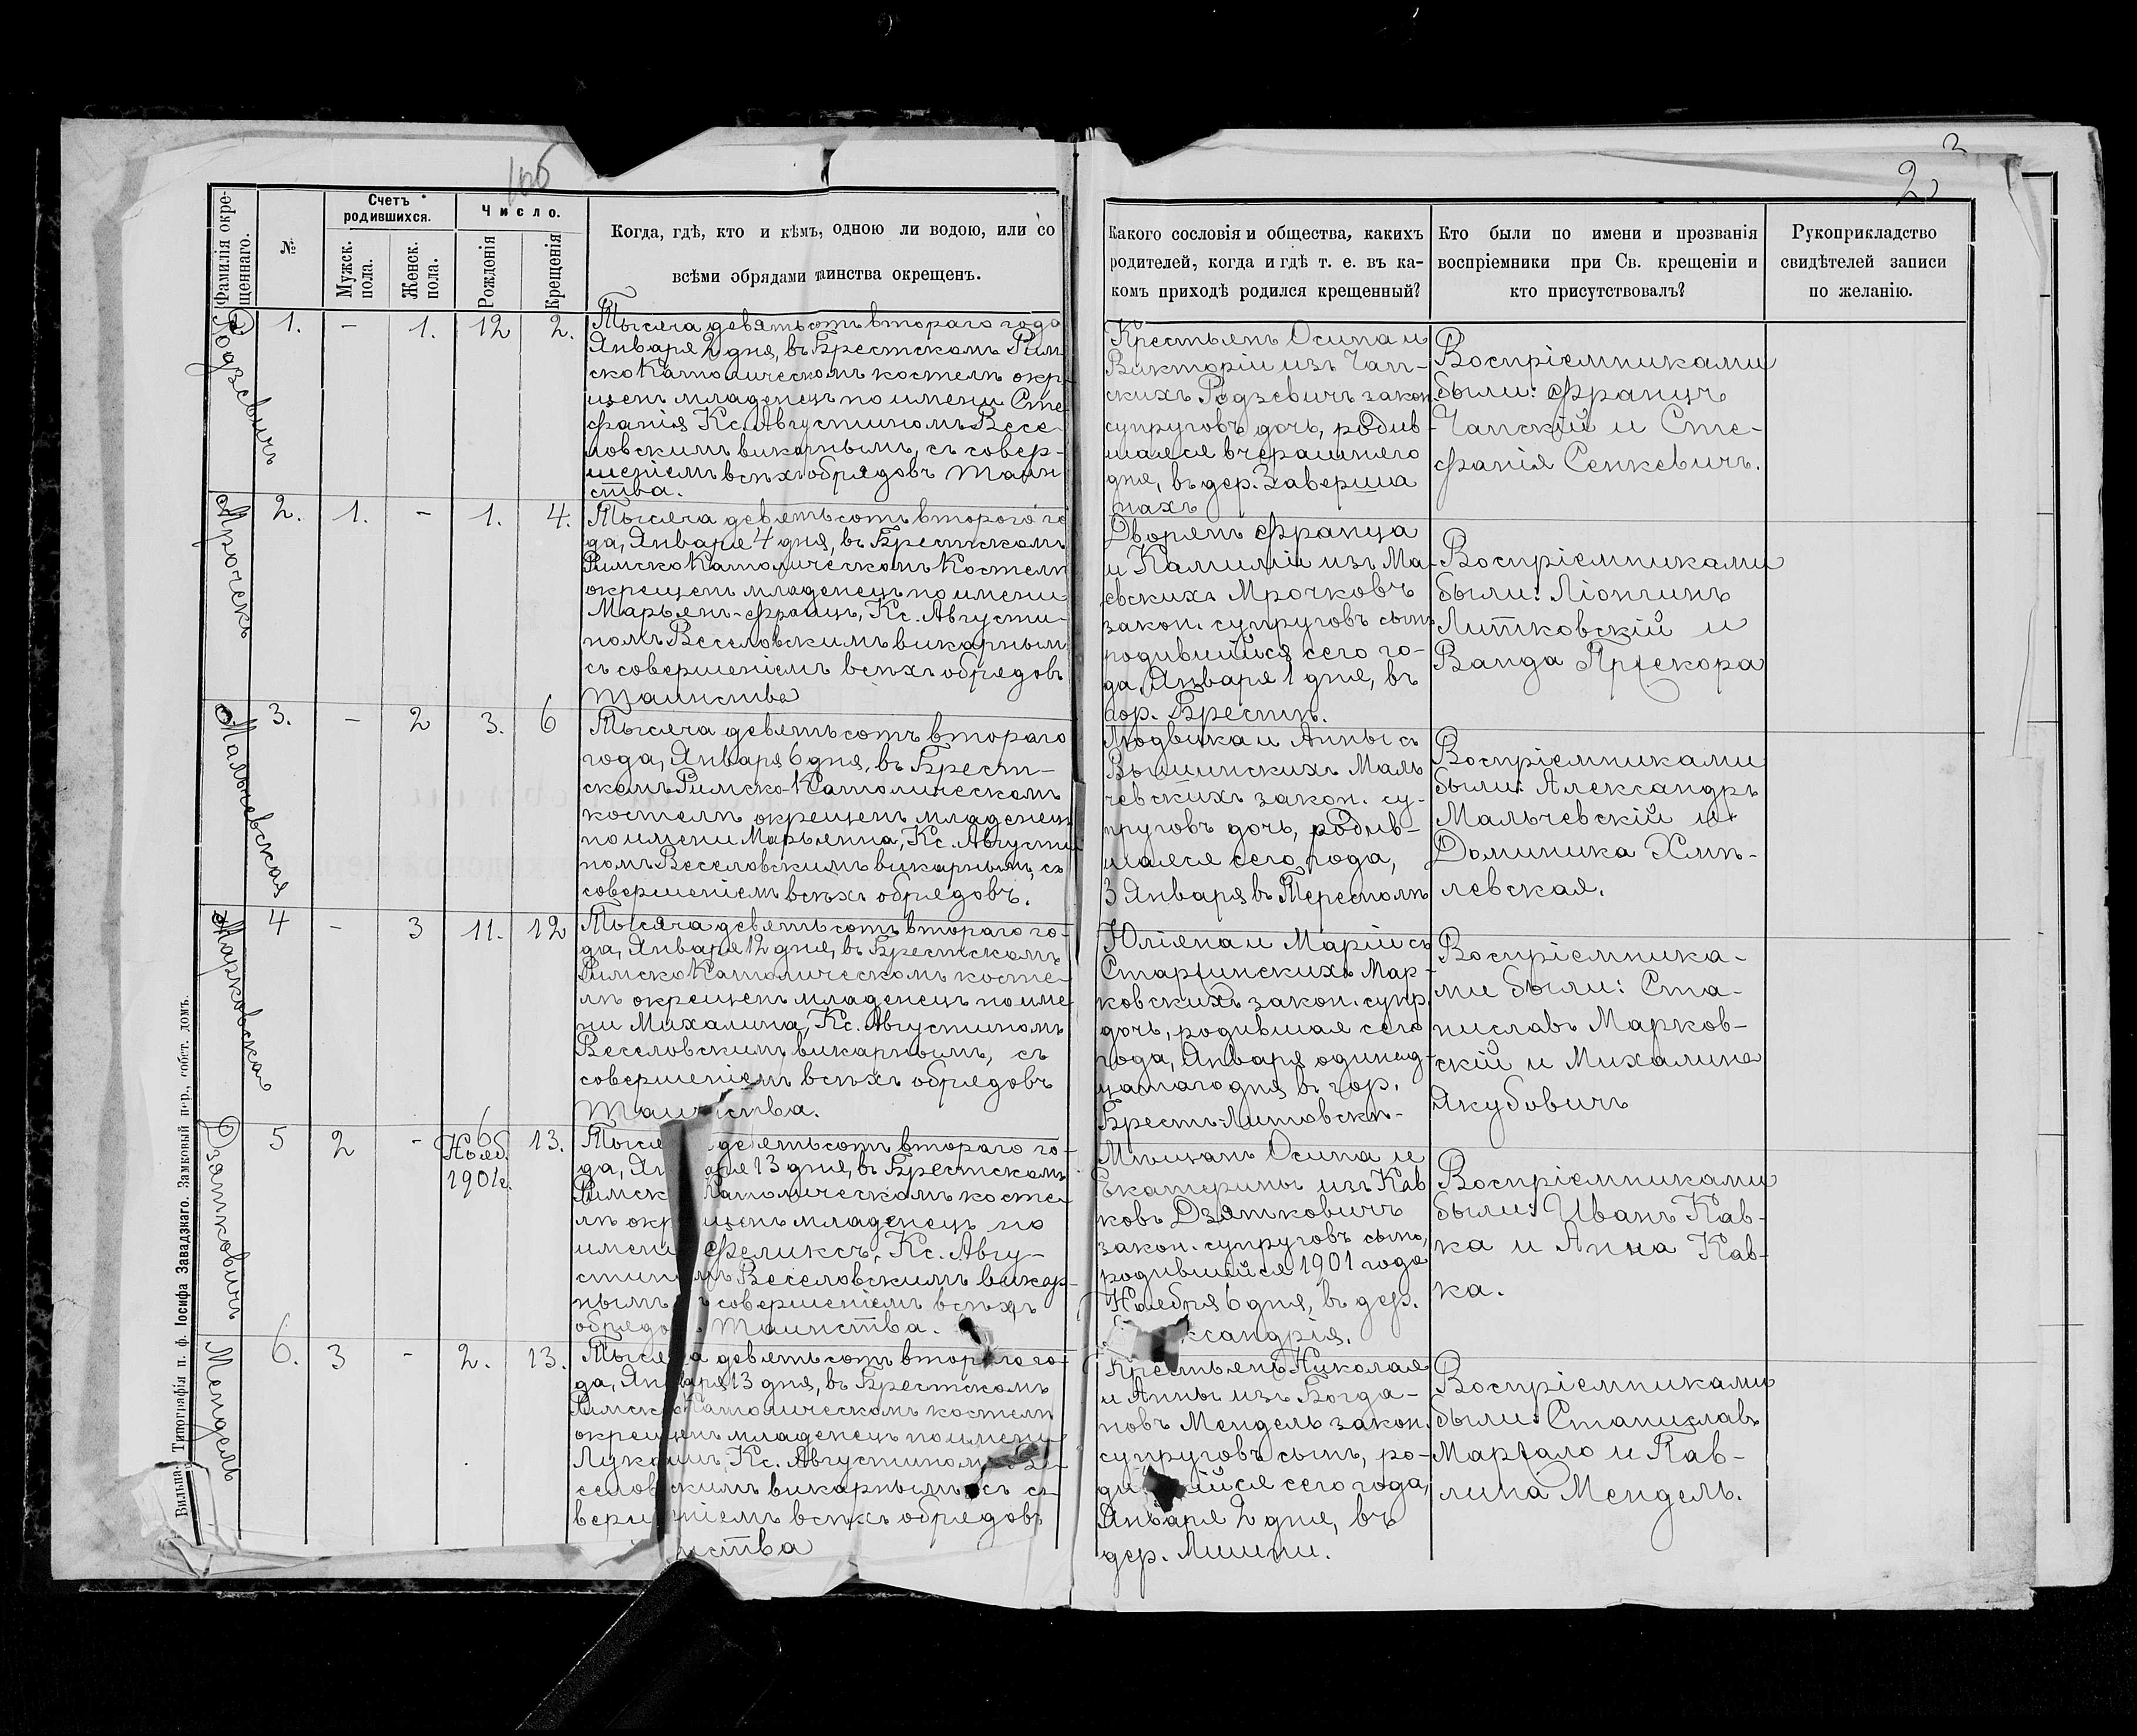 166
2
2
Фамилія окре-
щеннаго.
№
Счетъ
родившихся.
Мужск.
пола.
Женск.
пола.
Число.
Рожденія
Крещенія
Когда, гдѣ, кто и кѣмъ, одною ли водою, или со
всѣми обрядами таинства окрещенъ.
Какого сословія и общества, какихъ
родителей, когда и гдѣ т. е. въ ка-
комъ приходѣ родился крещенный?
Кто были по имени и прозванія
воспріемники при Св. крещеніи и
кто присутствовалъ?
Рукоприкладство
свидѣтелей записи
по желанію.
Родзевичъ
1. - 1. 12 2.
Тысяча девятьсотъ втораго года
Января 2 дня, въ Брестскомъ Рим
ско Католическомъ костелѣ окр-
щенъ младенецъ по имени Сте
фанія Кс. Августиномъ Весе
ловскимъ викарнымъ, съ совер-
шеніемъ всѣхъ обрядовъ Таин
ства.
Крестьянъ Осипа и
Викторіи изъ Чап-
скихъ Родзевичъ закон.
супруговъ дочь, родив-
шаяся вчерашняго
дня, въ дер. Заверша
нахъ
Воспріемниками
были: Францъ
Чапскій и Сте-
фанія Сенкевичъ.
Мрочекъ
2. 1. - 1. 4.
Тысяча девятьсотъ второго го
да, Января 4 дня, въ Брестскомъ
Римско Католическомъ Костелѣ
окрещенъ младенецъ по имени
Марьянъ-Францъ, Кс. Августи-
номъ Веселовскимъ викарнымъ
съ совершеніемъ всѣхъ обрядовъ
Таинства
Дворянъ Франца
и Камиліи изъ Ма-
евскихъ Мрочковъ
закон. супруговъ сынъ
родившійся сего го-
да, Января 1 дня, въ
гор. Брестѣ.
Воспріемниками
были: Ліонгинъ
Литковскій и
Ванда
Мальчевская
3. - 2 3. 6
Тысяча девятьсотъ втораго
года, Января 6 дня, въ Брест-
скомъ Римско-Католическомъ
костелѣ окрещенъ младенецъ
по имени Марьянна, Кс. Августи
номъ Веселовскимъ викарнымъ, съ
совершеніемъ всѣхъ обрядовъ.
Людвика и Анны съ
Вышинскихъ Маль
чевскихъ закон. су-
пруговъ дочь, родив-
шаяся сего года,
3 Января въ Тересполѣ
Воспріемниками
были: Александръ
Мальчевскій и
Доминика Хмѣ-
левская.
Марковская
4 - 3 11. 12
Тысяча девятьсотъ втораго го-
да, Января 12 дня, въ Брестскомъ
Римско Католическомъ косте-
лѣ окрещенъ младенецъ по име
ни Михалина, Кс. Августиномъ
Веселовскимъ викарнымъ, съ
совершеніемъ всѣхъ обрядовъ
Таинства.
Юліяна и Маріи съ
Мар-
ковскихъ закон. супр.
дочь, родившая сего
года, Января одинад-
цатаго дня въ гор.
Брестъ-Литовскѣ-
Воспріемника-
ми были: Ста-
ниславъ Марков-
скій и Михалина
Якубовичъ
Дзятковичъ
5 2 - 6 Нояб. 1901 г. 13.
Тысяча девятьсотъ втораго го-
да, Января 13 дня, въ Брестскомъ
Римско Католическомъ косте-
лѣ окрещенъ младенецъ по
имени Феликсъ, Кс. Авгу-
стиномъ Веселовскимъ викар-
нымъ съ совершеніемъ всѣхъ
обрядовъ Таинства.
Мѣщанъ Осипа и
Екатерины изъ Кав
ковъ Дзятковичъ
закон. супруговъ сынъ,
родившійся 1901 года
Ноября 6 дня, въ дер.
ксандрія.
Воспріемниками
были: Иванъ Кав-
ка и Анна Кав-
ка.
Мендель
6. 3 - 2. 13.
Тысяча девятьсотъ втораго го-
да, Января 13 дня, въ Брестскомъ
Римско Католическомъ костелѣ
окрещенъ младенецъ по имени
Лукашъ, Кс. Августиномъ Ве-
селовскимъ викарнымъ съ со-
вершеніемъ всѣхъ обрядовъ
нства
Крестьянъ Николая
и Анны изъ Богда-
новъ Мендель закон.
супруговъ сынъ, ро-
дившійся сего года,
Января 2 дня, въ
дер.
Воспріемниками
были: Станиславъ
и Пав-
лина Мендель.
Вильна. Типографія п. ф. Іосифа Завадзкаго. Замковый пер., собст. домъ.